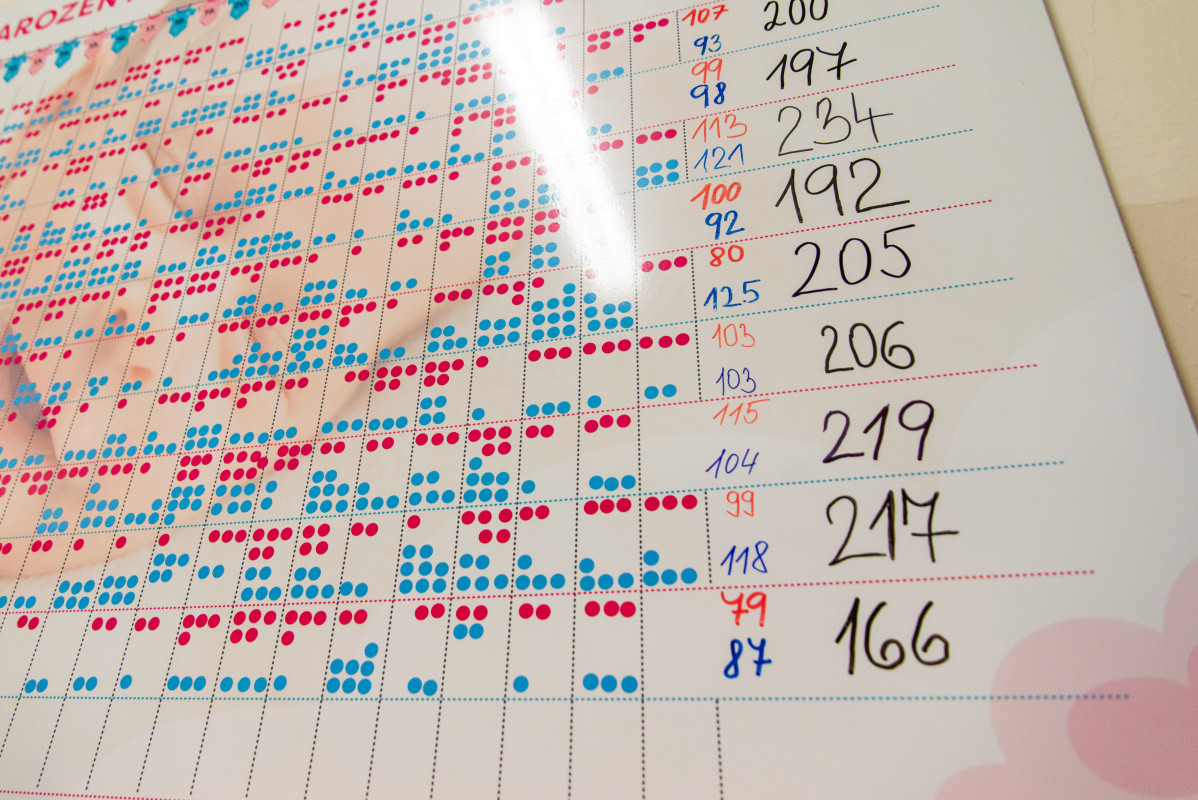 AROZEN
107
93
200
99
98
197
113
121
234
100
92
192
80
125
205
103
103
206
115
104
219
99
118
217
79
87
166